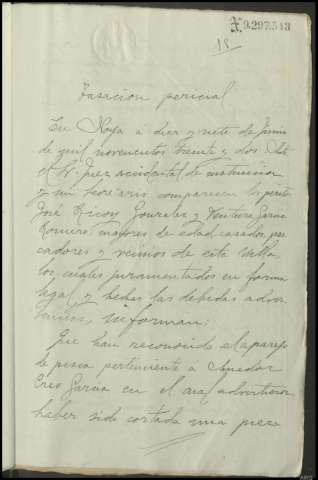 X9.297.543
18
Tasación pericial
En Noya a diez y siete de Junio
de mil novecientos treinta y dos Ante
el Sr. Juez accidental de instrucción
y mi Secretario comparecen los peritos
José Ricoy Gonzalez y Ventura Garcia
Romero, mayores de edad, casados, pes
cadores y vecinos de esta Villa,
los cuales juramentados en forma
legal, y hechas las debidas adver
tencias, informan:
Que han reconocido el aparejo
de pesca perteniente a Amador
Creo Garcia en el cual advirtieron
haber sido cortada una pieza